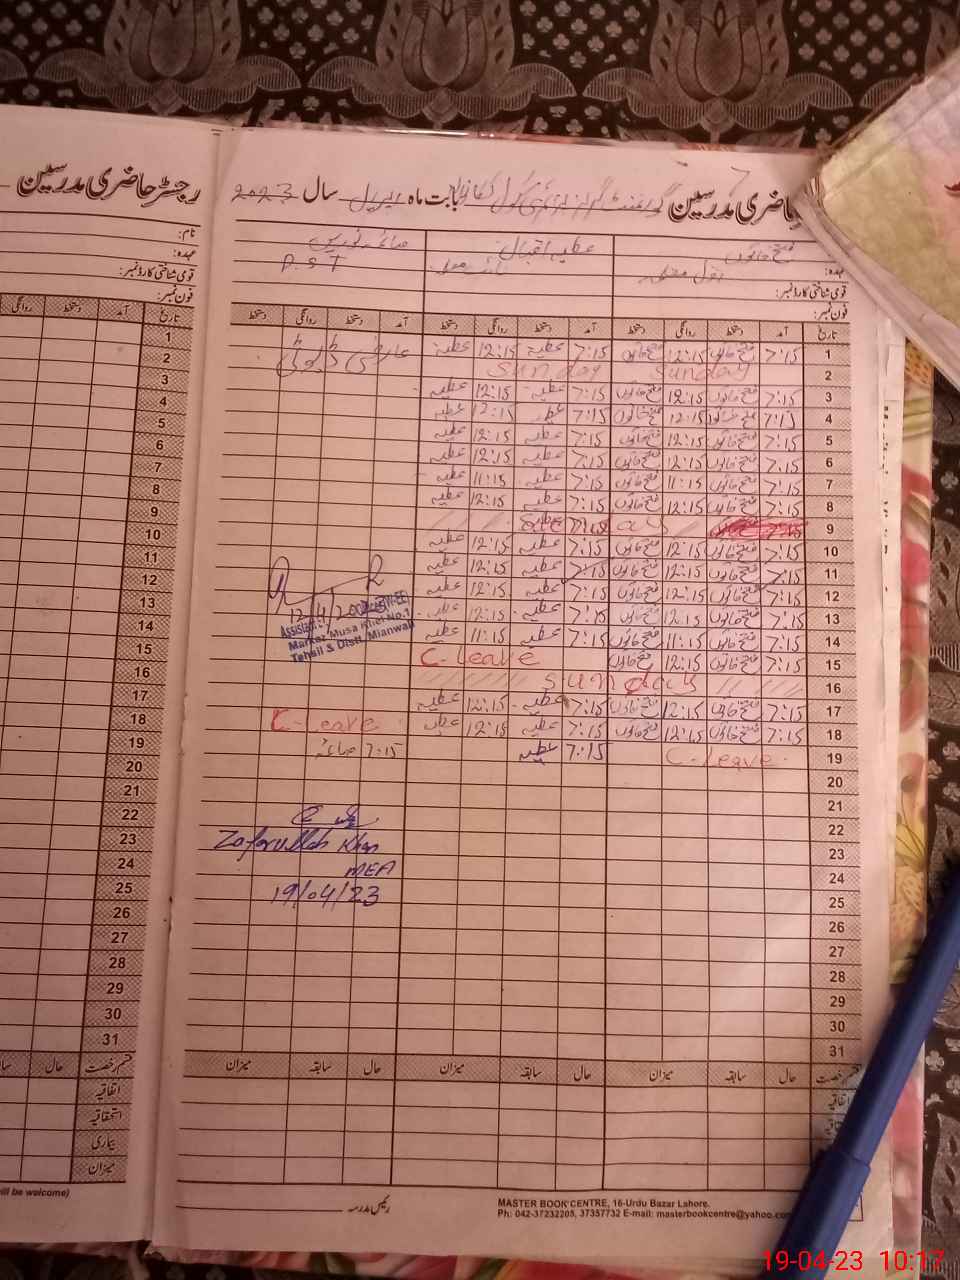 رجسٹر حاضری مدرسین
حاضری مدرسین گورنمنٹ گرلز پرائمری سکول بابت ماہ اپریل سال 2023
نام:
عہدہ:
قومی شناختی کارڈ نمبر:
فون نمبر:
فتح خاتون
عطیہ اقبال
صائمہ نورین
عہدہ:
P.S.T
قومی شناختی کارڈ نمبر:
فون نمبر:
تاریخ آمد دستخط روانگی
تاریخ آمد دستخط روانگی دستخط آمد دستخط روانگی دستخط آمد دستخط روانگی دستخط
1 7:15 فتح خاتون 12:15 فتح خاتون 7:15 عطیہ 12:15 عطیہ عارضی ڈیوٹی
2 Sunday Sunday
3 7:15 فتح خاتون 12:15 فتح خاتون 7:15 عطیہ 12:15 عطیہ
4 7:15 فتح خاتون 12:15 فتح خاتون 7:15 عطیہ 12:15 عطیہ
5 7:15 فتح خاتون 12:15 فتح خاتون 7:15 عطیہ 12:15 عطیہ
6 7:15 فتح خاتون 12:15 فتح خاتون 7:15 عطیہ 12:15 عطیہ
7 7:15 فتح خاتون 11:15 فتح خاتون 7:15 عطیہ 11:15 عطیہ
8 7:15 فتح خاتون 12:15 فتح خاتون 7:15 عطیہ 12:15 عطیہ
9
10 7:15 فتح خاتون 12:15 فتح خاتون 7:15 عطیہ 12:15 عطیہ
11 7:15 فتح خاتون 12:15 فتح خاتون 7:15 عطیہ 12:15 عطیہ
12 7:15 فتح خاتون 12:15 فتح خاتون 7:15 عطیہ 12:15 عطیہ
13 7:15 فتح خاتون 12:15 فتح خاتون 7:15 عطیہ 12:15 عطیہ
14 7:15 فتح خاتون 11:15 فتح خاتون 7:15 عطیہ 11:15 عطیہ
15 7:15 فتح خاتون 12:15 فتح خاتون C-leave
16 Sunday
17 7:15 فتح خاتون 12:15 فتح خاتون 7:15 عطیہ 12:15 عطیہ
18 7:15 فتح خاتون 12:15 فتح خاتون 7:15 عطیہ 12:15 عطیہ C-Leave
19 C-leave 7:15 عطیہ 7:15 صائمہ
20
21
22
23
24
25
26
27
28
29
30
31
Markaz Musa Khel No.1
Tehsil & Distt. Mianwali
Zafarullah Khan
MEA
19/04/23
1
2
3
4
5
6
7
8
9
10
11
12
13
14
15
16
17
18
19
20
21
22
23
24
25
26
27
28
29
30
31
قسم رخصت حال
قسم رخصت حال سابقہ میزان حال سابقہ میزان حال سابقہ میزان
اتفاقیہ
استحقاقیہ
بیماری
میزان
اتفاقیہ
رئیس مدرسہ
ill be welcome)
MASTER BOOK CENTRE, 16-Urdu Bazar Lahore.
Ph: 042-37232205, 37357732 E-mail: masterbookcentre@yahoo.com
19-04-23 10:17